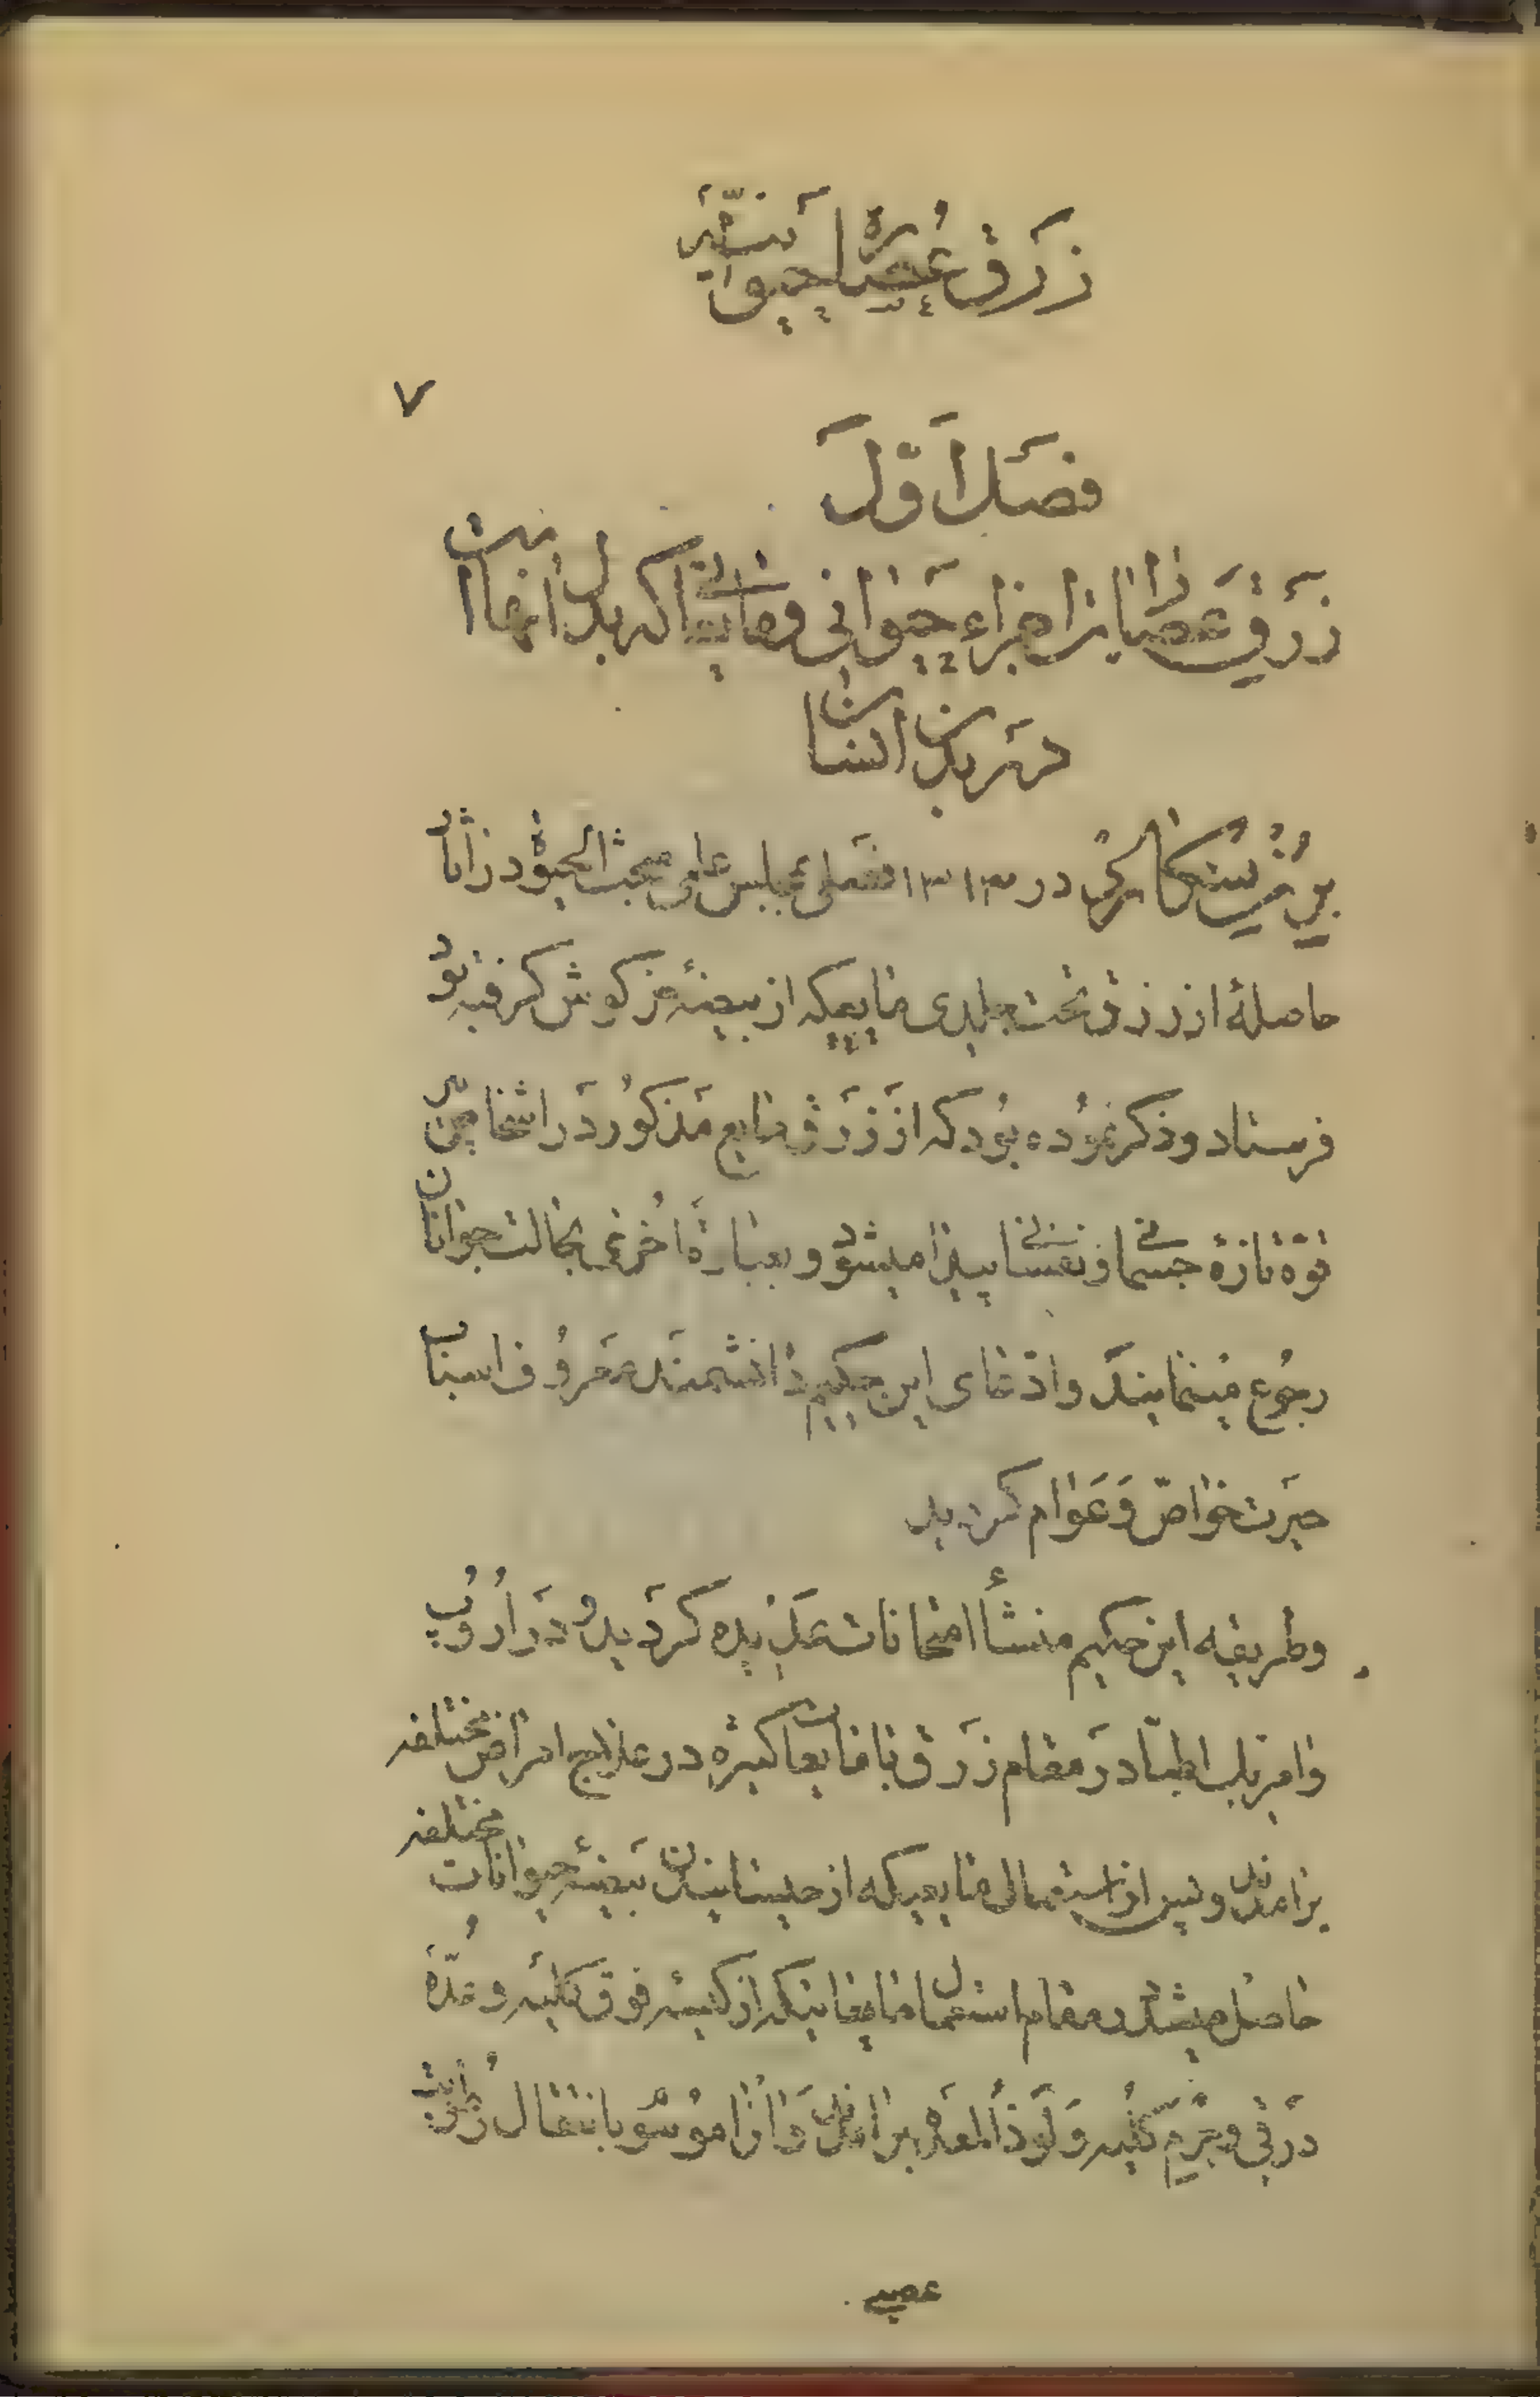 زَرق عُصارهٔ حیوانیّه
۷
فصل اوّل
زَرق عصارات اجزاء حیوانی و مایعاتی که بدل آنها است
در بدن انسان
در ۱۳۱۳ مجلس علمی مبحث الحیوة در اثر
حاصله از زرق تحت جلدی مایعیکه از بیضهٔ خرگوش گرفته بود
فرستاد و ذکر نموده بود که از زَرق مایع مذکور در اشخاص مسنّ
قوّه تازهٔ جسمانی و نفسانی پیدا میشود و بعبارة اُخری بحالت جوانان
رجوع مینمایند و ادّعای این حکیم دانشمند معروف اسباب
حیرت خواصّ و عوام گردید
و طریقه این حکیم منشأ امتحانات عدیده گردید و در اُروپ
و امریک اطبّا در مقام زرق با مایعات کثیره در علاج امراض مختلفه
برآمدند و پس از استعمال مایعیکه از خیسانیدن بیضهٔ حیوانات مختلفه
حاصل میشد در مقام استعمال مایعاتیکه از کیسه فوق کلیه و غدّه
درقی و جرم کلیه و لوزالمعده برآمدند و انزا موسوم بانتقال
عصبی